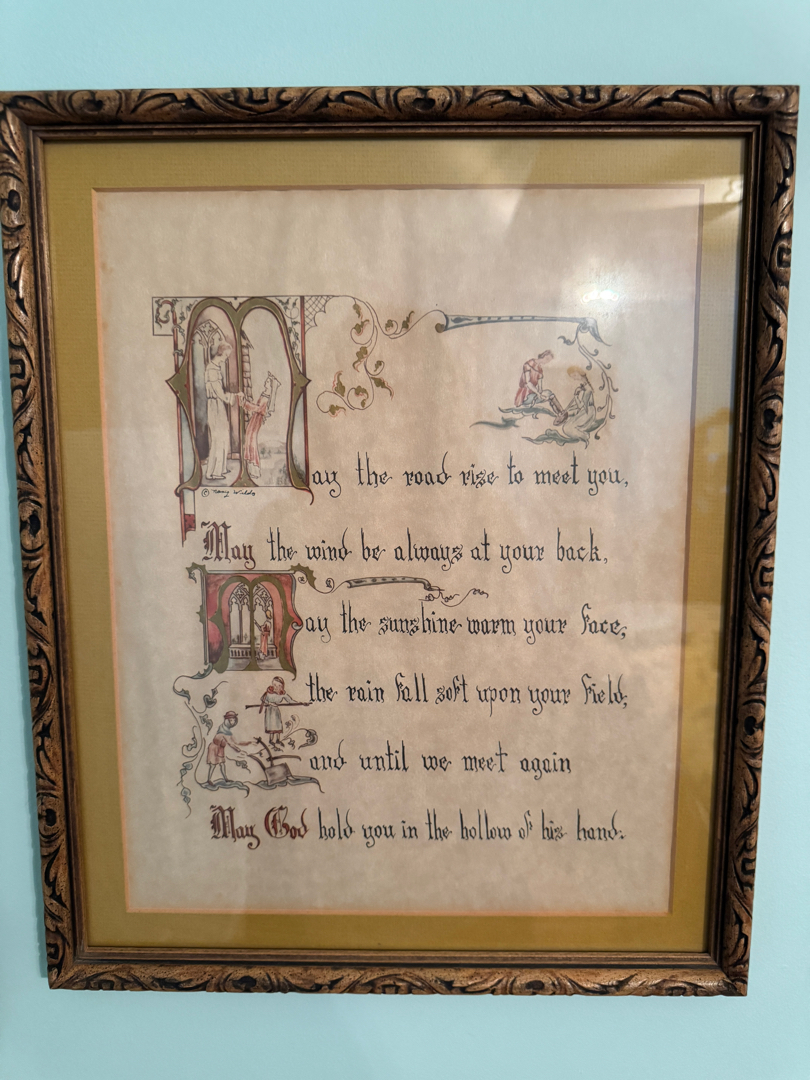 May the road rise to meet you,
© Tony Wilds
May the wind be always at your back,
May the sunshine warm your face;
the rain fall soft upon your field;
and until we meet again
May God hold you in the hollow of his hand.